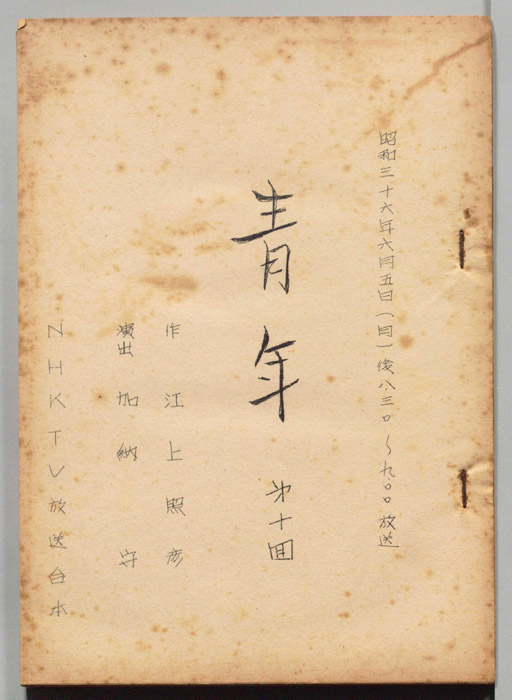 昭和三十六年六月五日(月)後八三〇~九、〇〇放送
青年 才十回
作 江上照彦
演出 加納守
NHKTV放送台本